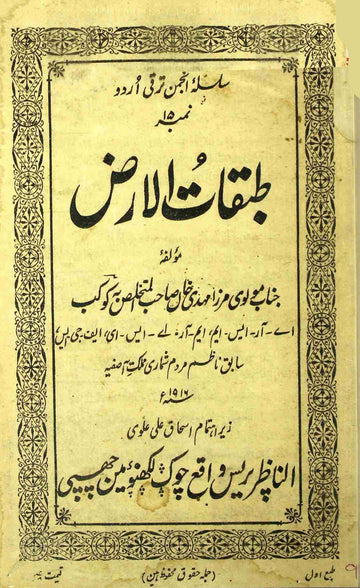 سلسلۂ انجمن ترقی اُردو
نمبر ۱۵
طبقات الارض
مؤلفۂ
جناب مولوی مرزا مہدی خاں صاحب المتخلص بہ کوکب
اے۔ آر۔ ایس۔ ایم، ایم۔ آر۔ اے۔ ایس۔ ای، ایف۔ جی۔ ایس
سابق ناظم مردم شماری مملکت آصفیہ
۱۹۱۶ء
زیر اہتمام اسحاق علی علوی
الناظر پریس واقع چوک لکھنؤ مین چھپی
طبع اول
(جملہ حقوق محفوظ ہین)
قیمت